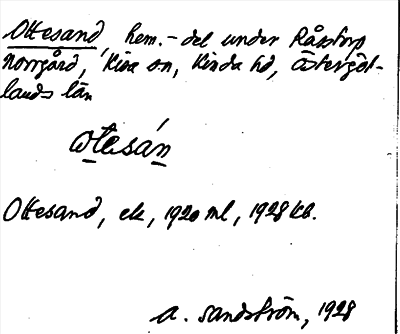 Ottesand, hem.-del under Råstorp
Norrgård, Kisa sn, Kinda hd, Östergöt-
lands län
ωtesán
Ottesand, ek, 1920 ml, 1928 kb.
A. Sandström, 1928